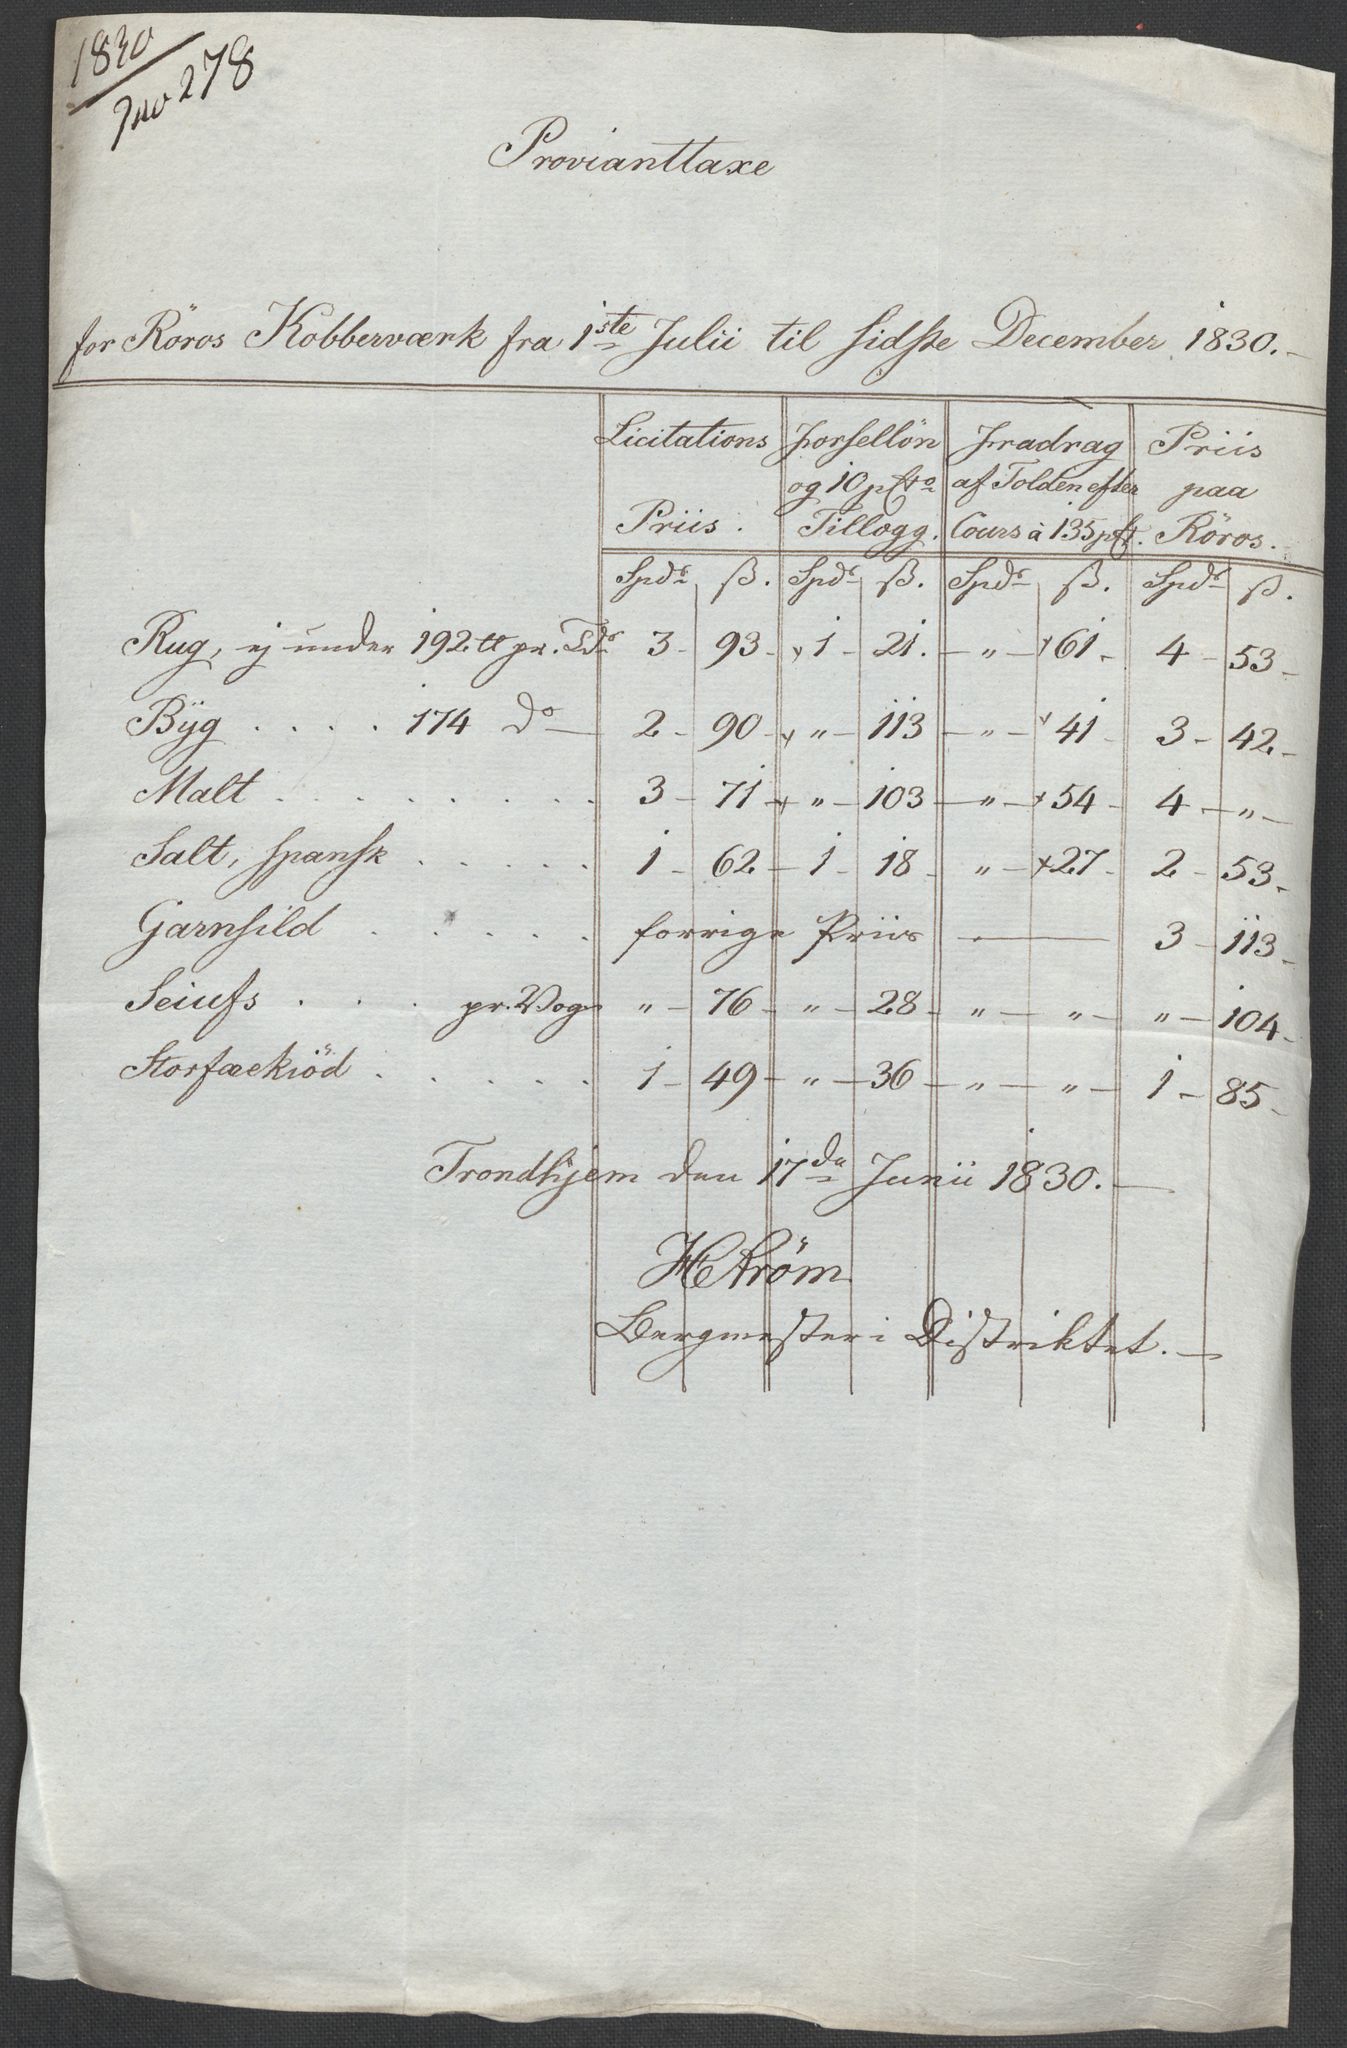 1830
No 278
Provianttaxe
for Röros Kobberværk fra 1ste Julii til sidste December 1830.
Licitations Priis. | Forsellön og 10 pCto Tillægg. | Fradrag af Tolden efter Cours à 135 pCt. | Priis paa Röros.
Spdr | ß. | Spdr | ß. | Spdr | ß. | Spdr | ß.
Rug, ej under 192 tt pr. Tdr 3 - 93 - 1 - 21. - " - 61 - 4 - 53 -
Bÿg . . . . 174 Do — 2 - 90 - " - 113 - " - 41 - 3 - 42 -
Malt . . . . . . . . . 3 - 71 - " - 103 - " - 54 - 4 - " -
Salt, spansk . . . . . 1 - 62 - 1 - 18 - " - 27 - 2 - 53 -
Garnsild . . . . . forrige Priis — 3 - 113 -
Seiufs . . . pr. Vog " - 76 - " - 28 - " - " - " - 104 -
Storfæekiöd . . . . . 1 - 49 - " - 36 - " - " - 1 - 85 -
Trondhjem den 17de Junii 1830. —
HStröm
Bergmester i Distriktet. —